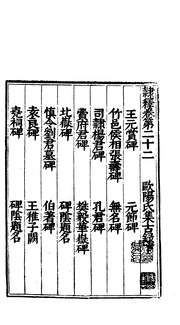 隸釋卷第二十二
歐陽氏集古錄
王元賞碑
元節碑
竹邑侯相張壽碑
無名碑
司隸楊君碑
孔君碑
費府君碑
樊毅華嶽碑
北嶽碑
碑陰題名
慎令劉君墓碑
伯著碑
袁良碑
王稚子闕
堯祠碑
碑陰題名